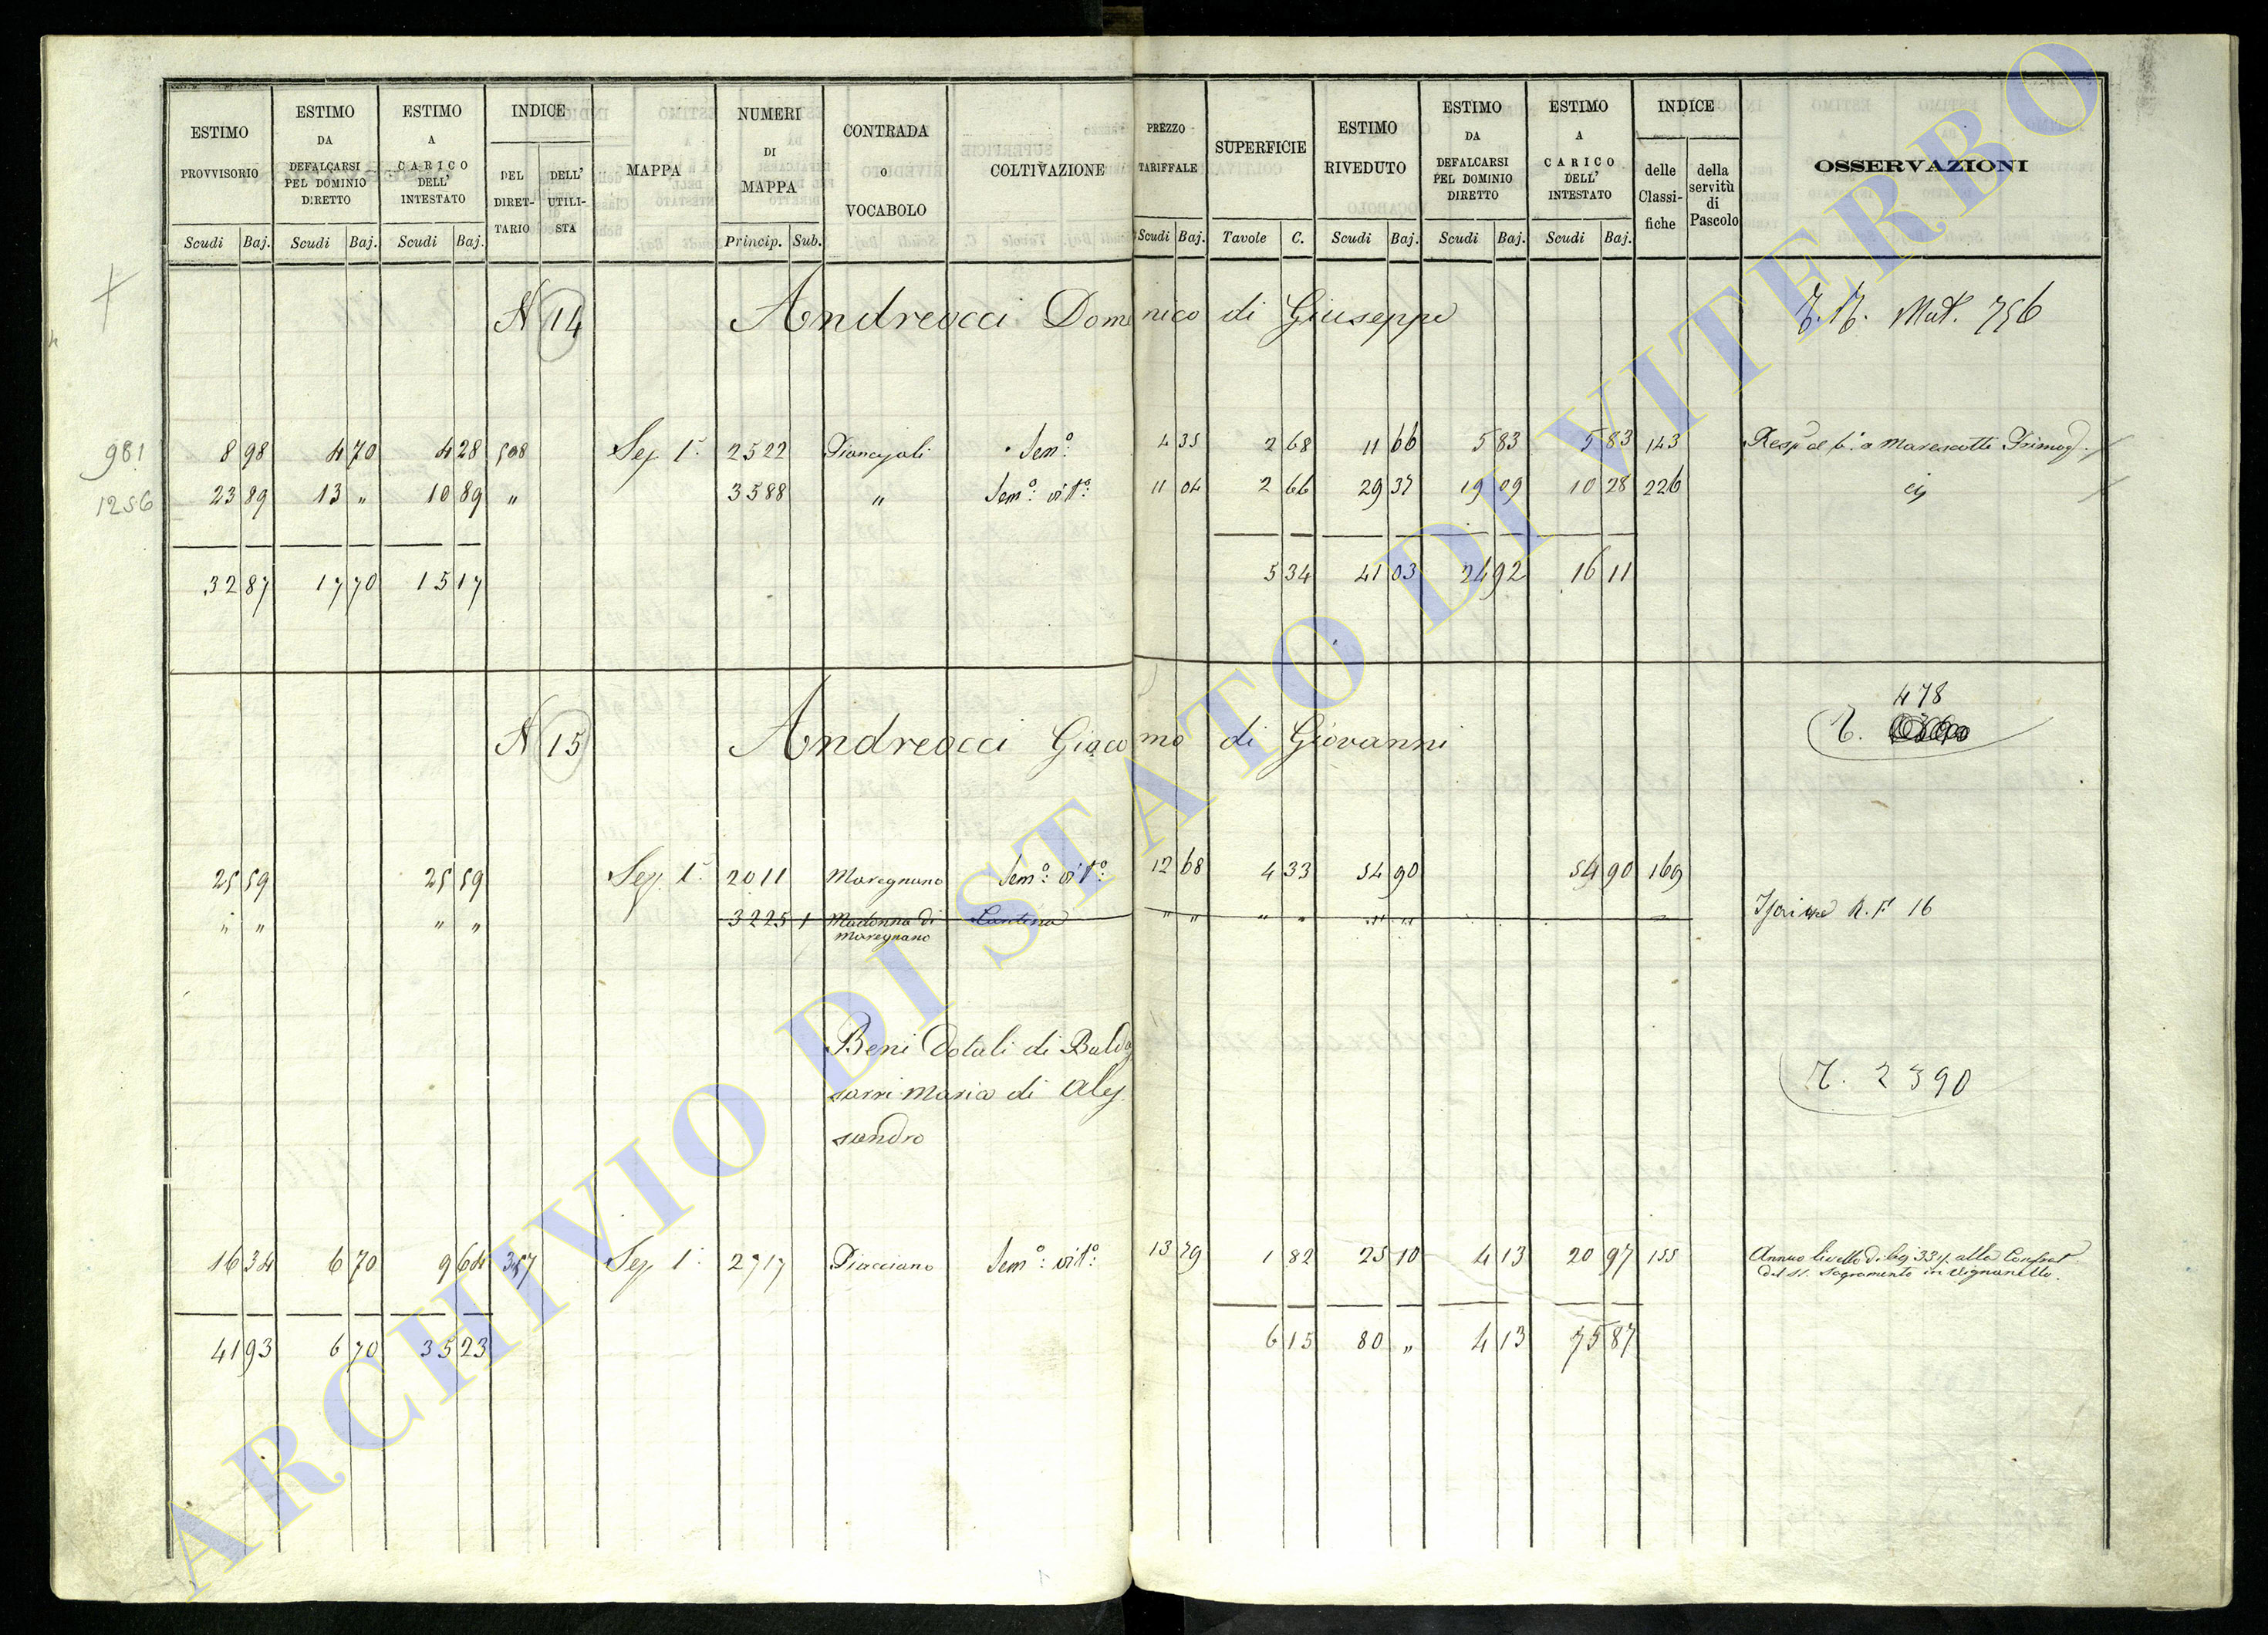 ESTIMO PROVVISORIO
ESTIMO DA DEFALCARSI PEL DOMINIO DIRETTO
ESTIMO A CARICO DELL' INTESTATO
INDICE
DEL DIRET- TARIO
DELL' UTILI- STA
MAPPA
NUMERI DI MAPPA
CONTRADA O VOCABOLO
COLTIVAZIONE
PREZZO TARIFFALE
SUPERFICIE
ESTIMO RIVEDUTO
ESTIMO DA DEFALCARSI PEL DOMINIO DIRETTO
ESTIMO A CARICO DELL' INTESTATO
INDICE
delle Classi- fiche
della servitù di Pascolo
OSSERVAZIONI
Scudi Baj. Scudi Baj. Scudi Baj. Princip. Sub. Scudi Baj. Tavole C. Scudi Baj. Scudi Baj. Scudi Baj.
N 14 Andreocci Domenico di Giuseppe Mat. 756
981 8 98 4 70 4 28 508 Sez. 1ª 2522 Sem.º 4 35 2 68 11 66 5 83 5 83 143 a Marescotti
1256 23 89 13 „ 10 89 „ 3588 „ Sem.º vit.º 11 04 2 66 29 37 19 09 10 28 226
32 87 17 70 15 17 5 34 41 03 24 92 16 11
478
N 15 Andreocci Giacomo di Giovanni
25 59 25 59 Sez. 1ª 2011 Maregnano Sem.º vit.º 12 68 4 33 54 90 54 90 169
„ „ „ „ 3225 1 Madonna di Maregnano Cantina „ „ „ „ „ „ R. F. 16
Beni Dotali di Baldas
sarri Maria di Ales
sandro
2390
16 34 6 70 9 64 357 Sez. 1ª 2717 Piacciano Sem.º vit.º 13 79 1 82 25 10 4 13 20 97 155 Annuo livello di baj 33 alla Confrat.
del SS. Sagramento in Vignanello.
41 93 6 70 35 23 6 15 80 „ 4 13 75 87
ARCHIVIO DI STATO DI VITERBO